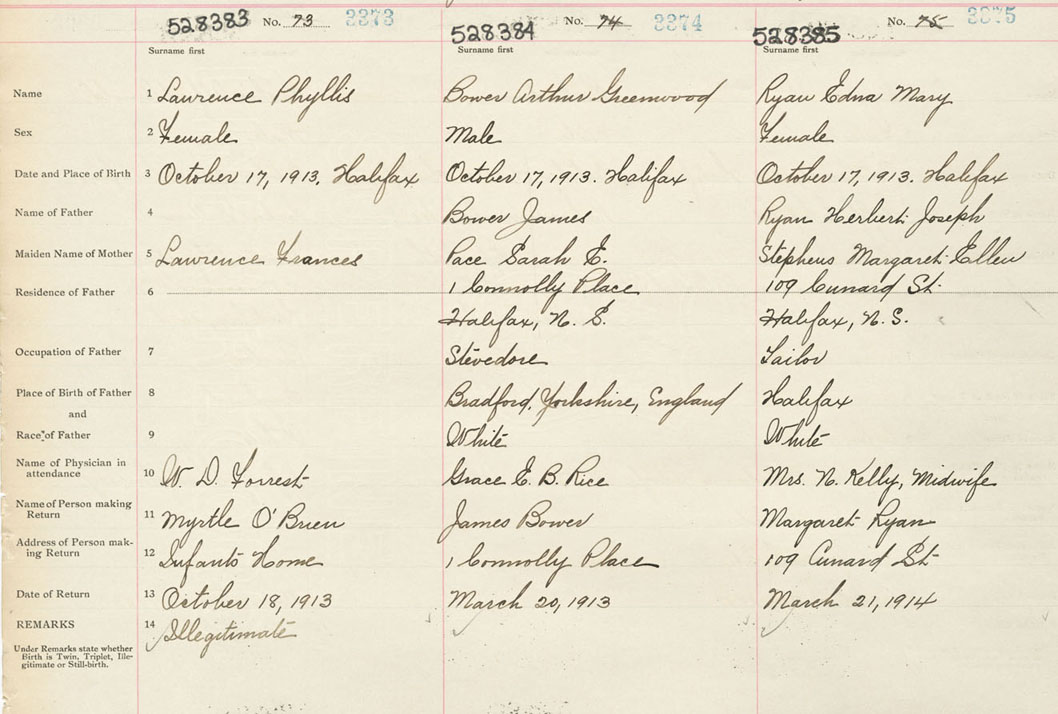 528383 No. 73 3373 528384 No. 74 3374 528385 No. 75 3375
Surname first Surname first Surname first
Name 1 Lawrence Phyllis Bower Arthur Greenwood Ryan Edna Mary
Sex 2 Female Male Female
Date and Place of Birth 3 October 17, 1913. Halifax October 17, 1913. Halifax October 17, 1913. Halifax
Name of Father 4 Bower James Ryan Herbert Joseph
Maiden Name of Mother 5 Lawrence Frances Pace Sarah E. Stephens Margaret Ellen
Residence of Father 6 1 Connolly Place 109 Cunard St.
Halifax, N. S. Halifax, N.S.
Occupation of Father 7 Stevedore Tailor
Place of Birth of Father 8 Bradford, Yorkshire, England Halifax
and
Race of Father 9 White White
Name of Physician in
attendance 10 W. D. Forrest Grace E. B. Rice Mrs. N. Kelly, Midwife
Name of Person making
Return 11 Myrtle O'Brien James Bower Margaret Ryan
Address of Person mak-
ing Return 12 Infants Home 1 Connolly Place 109 Cunard St
Date of Return 13 October 18, 1913 March 20, 1913 March 21, 1914
REMARKS 14 Illegitimate
Under Remarks state whether
Birth is Twin, Triplet, Ille-
gitimate or Still-birth.